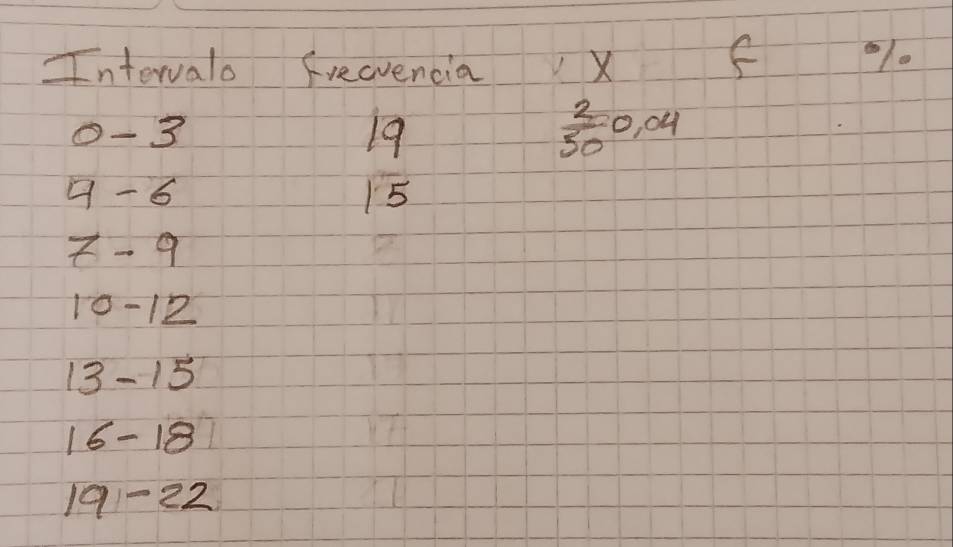 Intervalo frecuencia X F %
0-3 19 2/50 0,04
4-6 15
7-9
10-12
13-15
16-18
19-22